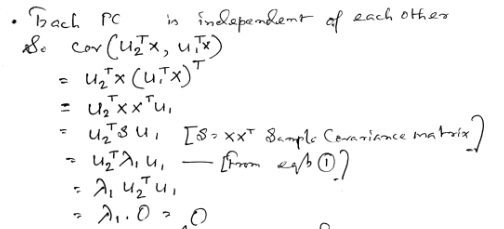 • Each PC is independent of each other
So cov(u₂ᵀx, u₁ᵀx)
= u₂ᵀx (u₁ᵀx)ᵀ
= u₂ᵀxxᵀu₁
= u₂ᵀSu₁ [S = xxᵀ Sample Covariance matrix]
= u₂ᵀλ₁u₁ — [From eqⁿ ①]
= λ₁u₂ᵀu₁
= λ₁.0 = 0